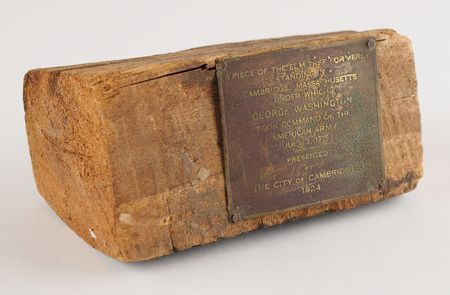 A PIECE OF THE ELM TREE FORMERLY
STANDING IN
CAMBRIDGE MASSACHUSETTS
UNDER WHICH
GEORGE WASHINGTON
TOOK COMMAND OF THE
AMERICAN ARMY
JULY 3, 1775
PRESENTED
BY
THE CITY OF CAMBRIDGE
1924